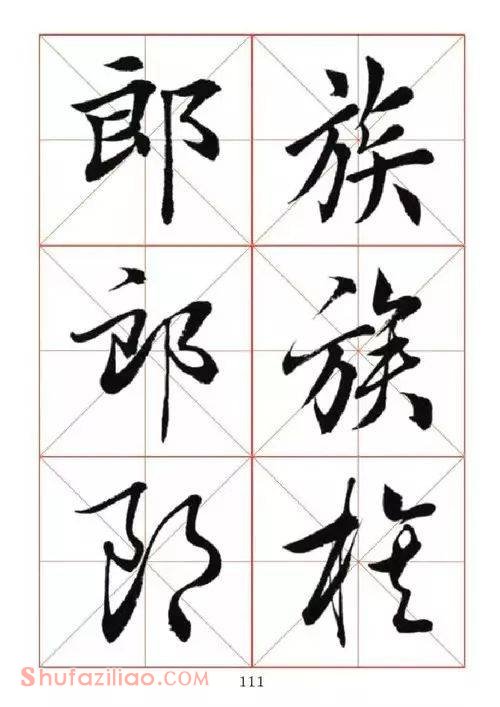 郎 族
郎 族
郎 族
Shufaziliao.com
111